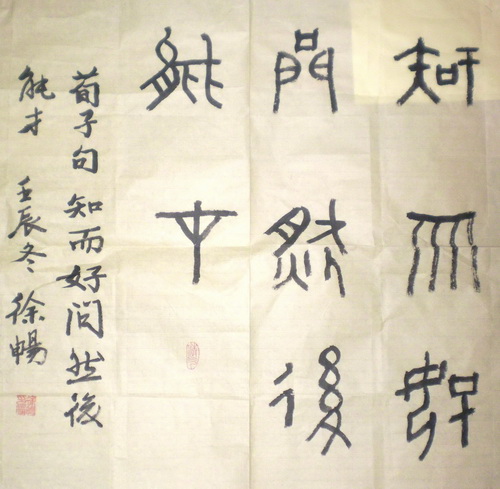 知而好
問然後
能才
荀子句 知而好問然後
能才 壬辰冬 徐暢